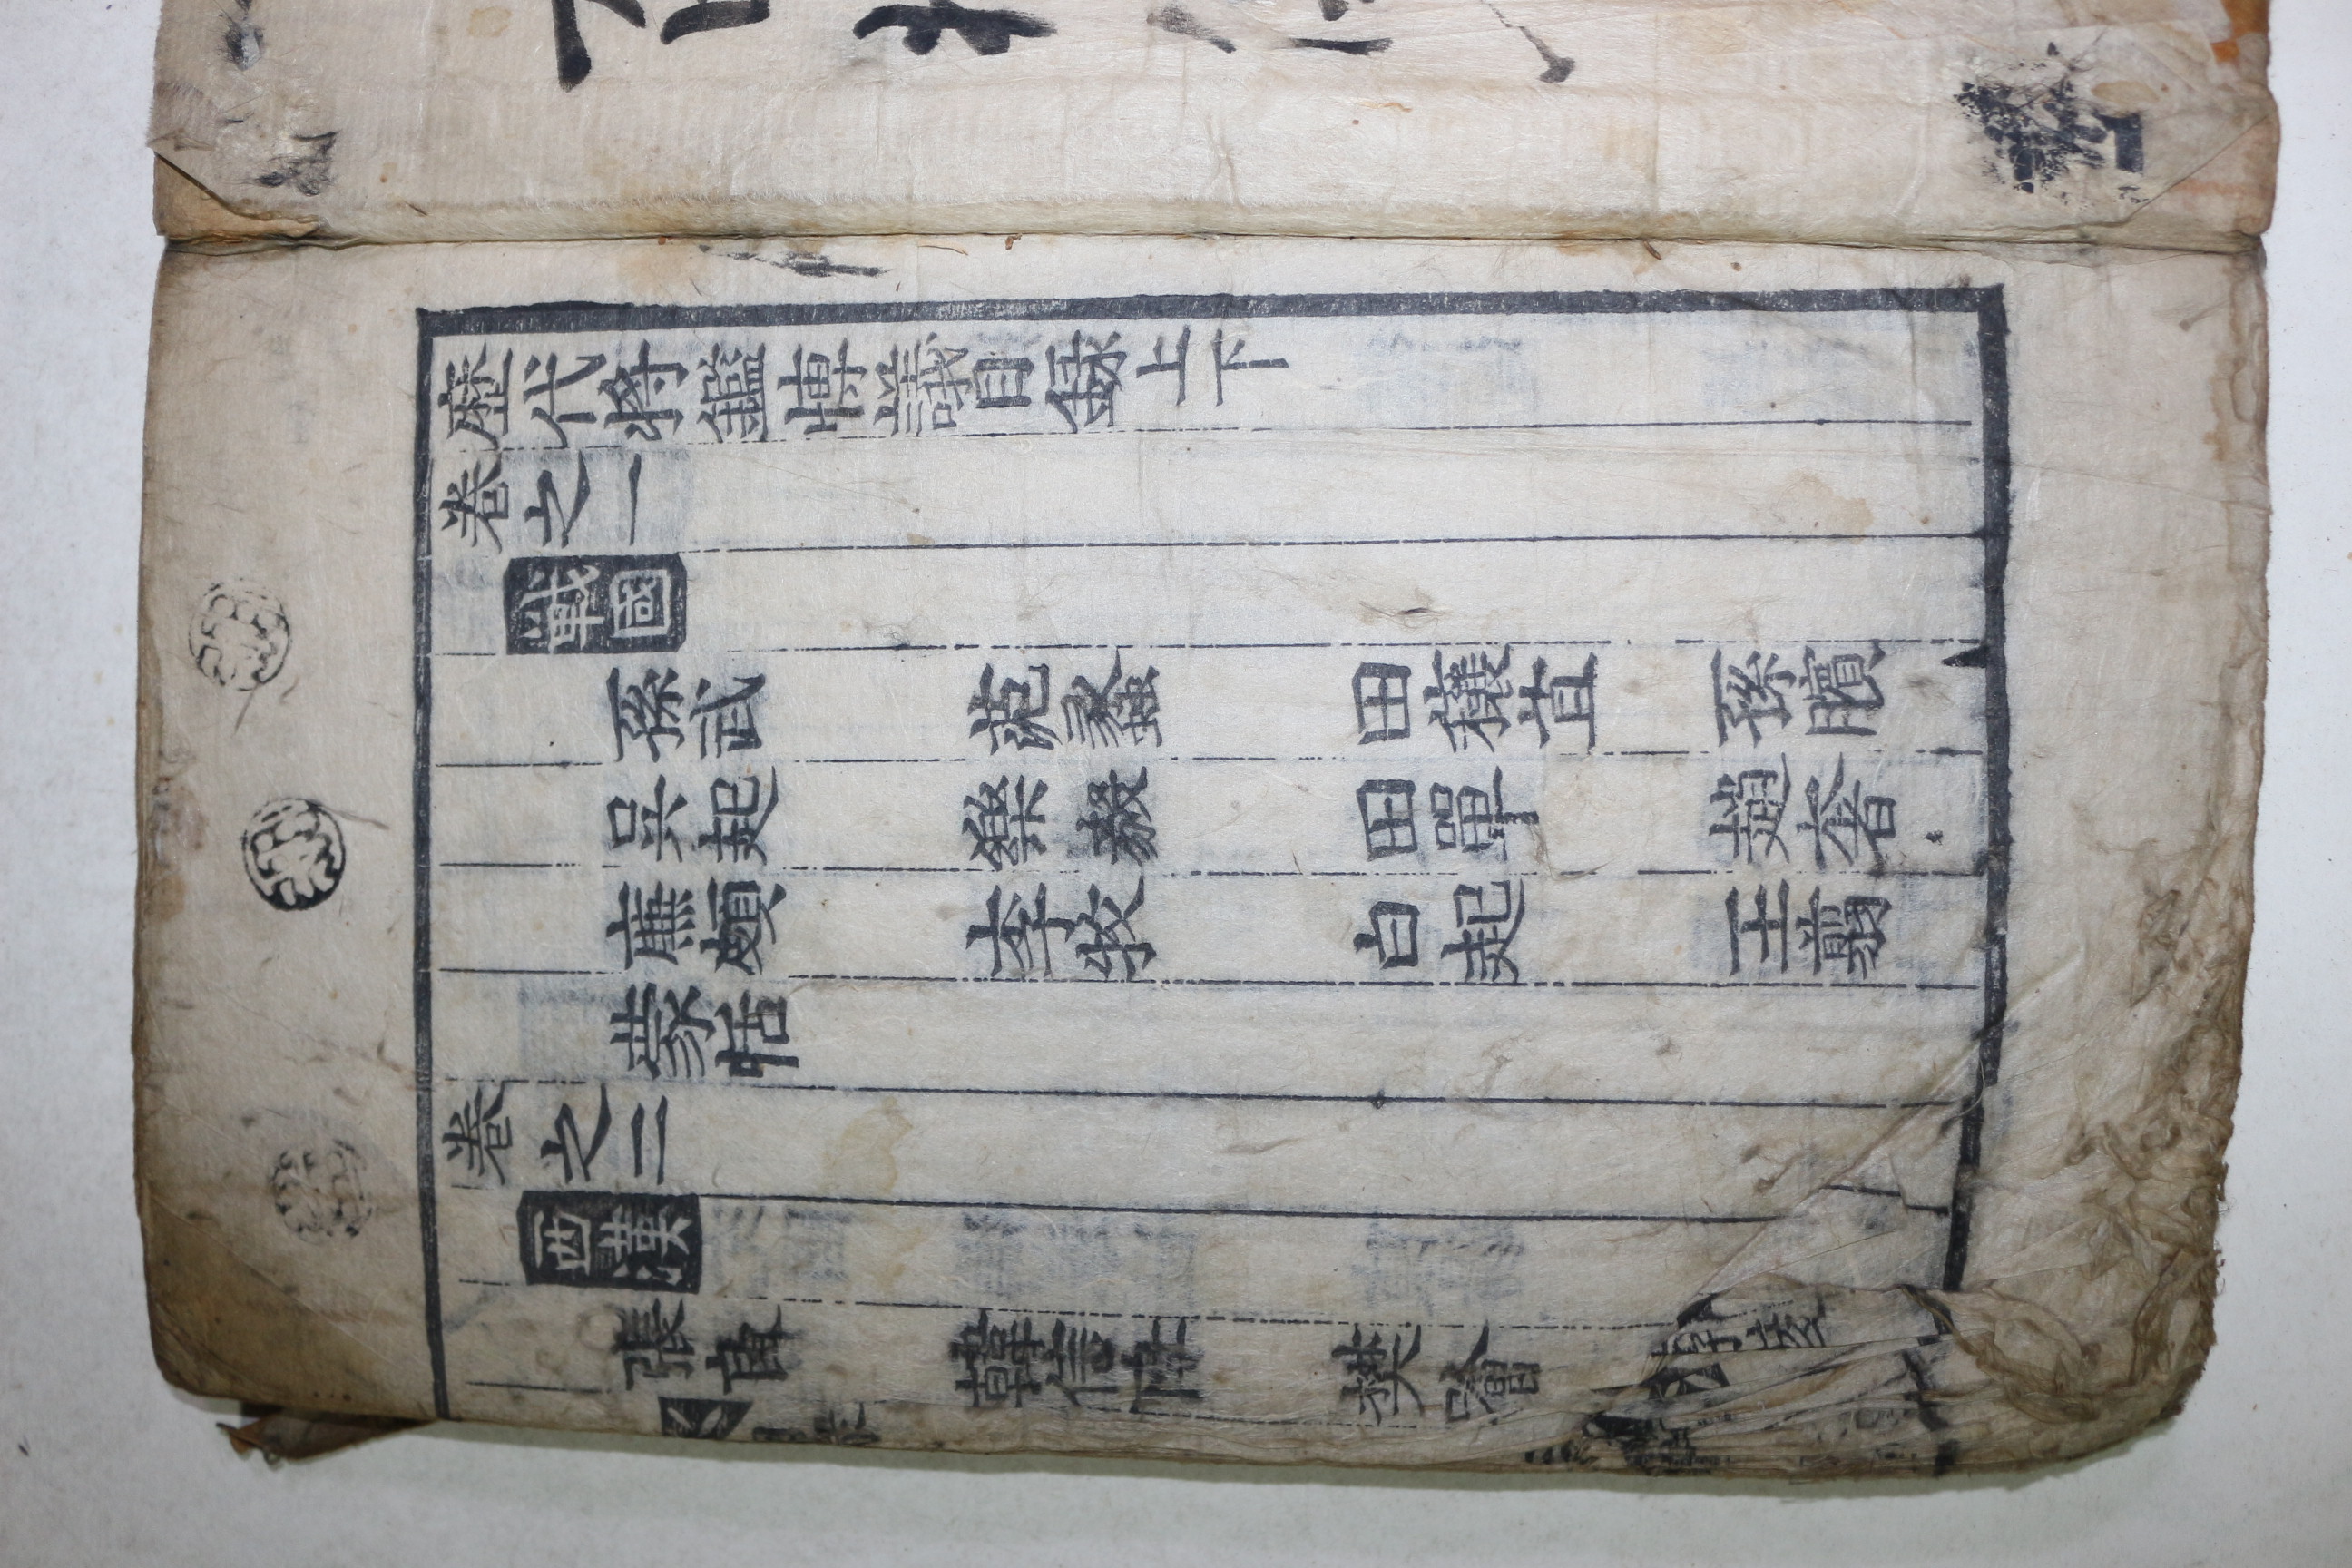 歷代將鑑博議目錄上下
卷之一
戰國
孫武 范蠡 田穰苴 孫臏
吳起 樂毅 田單 趙奢
廉頗 李牧 白起 王翦
蒙恬
卷之二
西漢
張良 韓信 樊噲